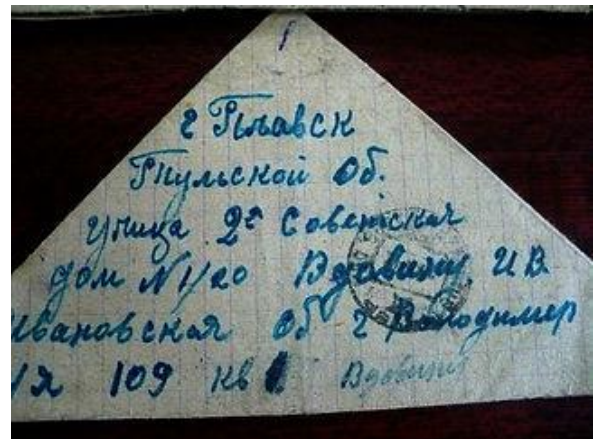 1
г Плавск
Тульской Об.
улица 2я Советская
дом №1/20 Вдовину И В
Ивановская Об г Володимер
п/я 109 кв 1 Вдовин